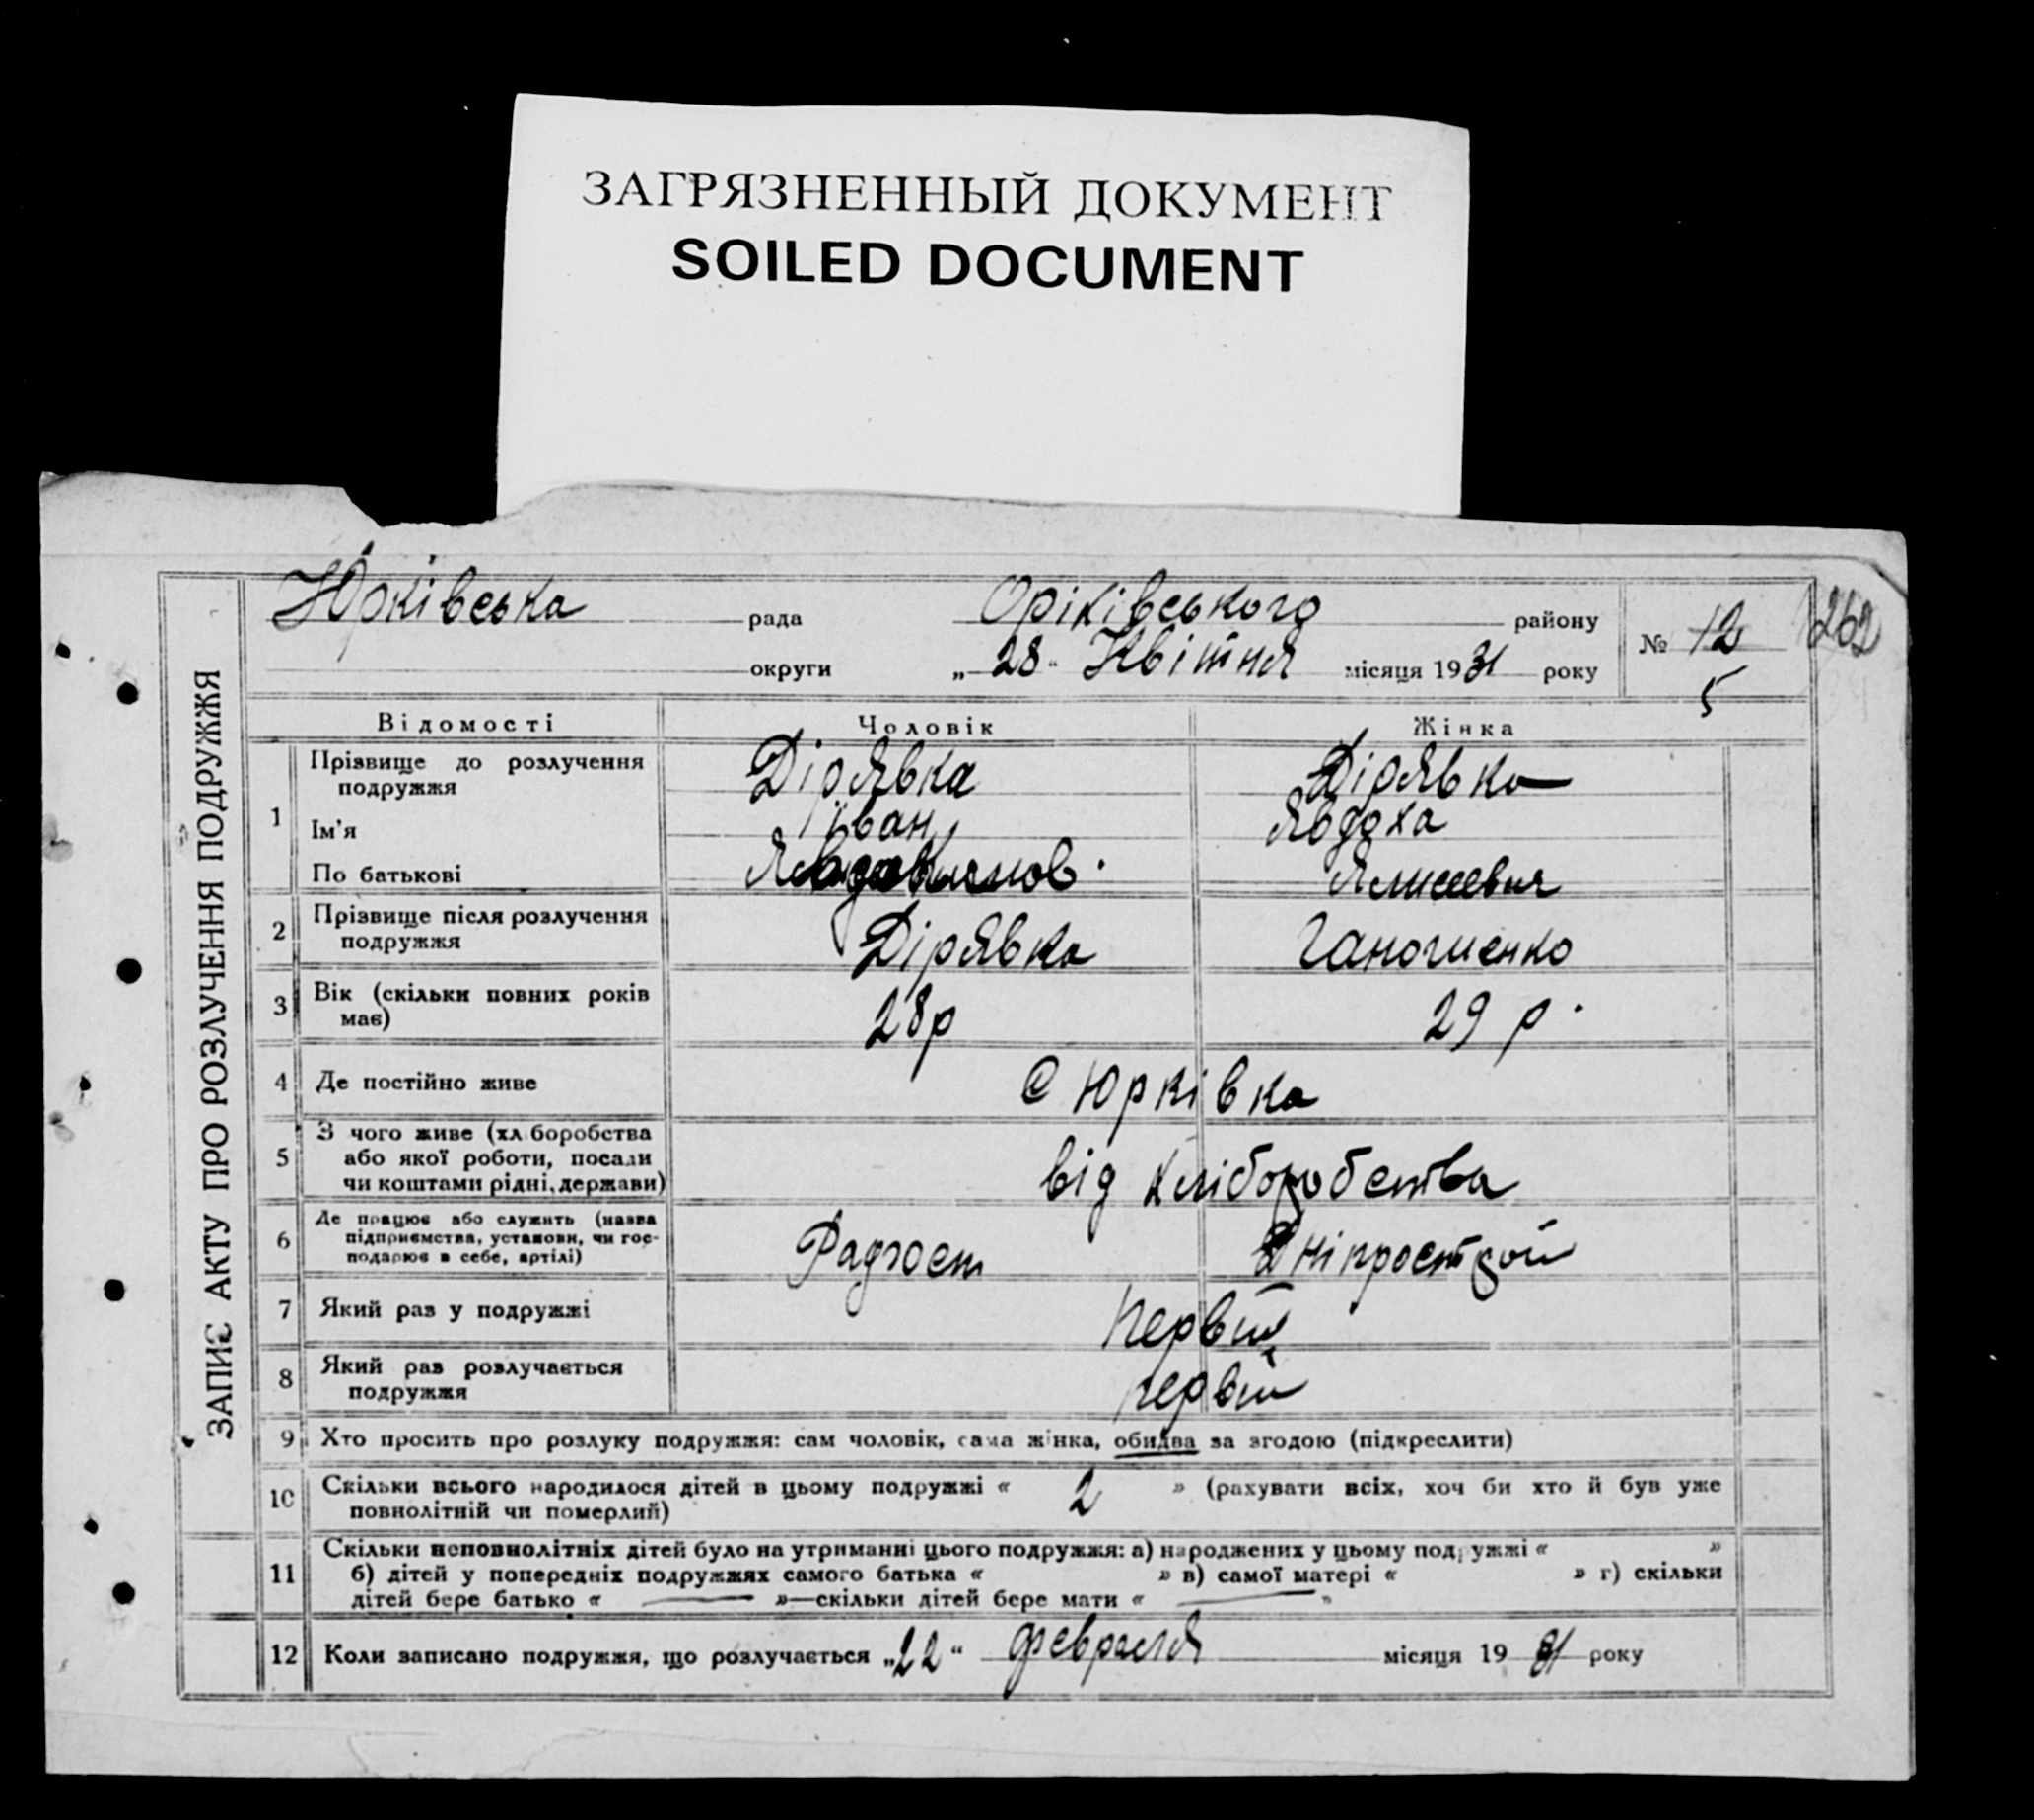 ЗАГРЯЗНЕННЫЙ ДОКУМЕНТ
SOILED DOCUMENT
ЗАПИС АКТУ ПРО РОЗЛУЧЕННЯ ПОДРУЖЖЯ
Юрківська рада Оріківського району № 12 262
округи „28" Квітня місяця 1931 року
5
Відомості Чоловік Жінка
1 Прізвище до розлучення Дірявка Дірявка
подружжя
Ім'я Іван Явдоха
По батькові
2 Прізвище після розлучення Дірявка
подружжя
3 Вік (скільки повних років 28р 29 р.
має)
4 Де постійно живе с Юрківка
5 З чого живе (хліборобства
або якої роботи, посади від хліборобства
чи коштами рідні, держави)
6 Де працює або служить (назва
підприємства, установи, чи гос- Радгосп Дніпрострой
подарює в себе, артілі)
7 Який раз у подружжі первий
8 Який раз розлучається первий
подружжя
9 Хто просить про розлуку подружжя: сам чоловік, сама жінка, обидва за згодою (підкреслити)
10 Скільки всього народилося дітей в цьому подружжі « 2 » (рахувати всіх, хоч би хто й був уже
повнолітній чи померлий)
11 Скільки неповнолітніх дітей було на утриманні цього подружжя: а) народжених у цьому подружжі « »
б) дітей у попередніх подружжях самого батька « » в) самої матері « » г) скільки
дітей бере батько « — »—скільки дітей бере мати « — »
12 Коли записано подружжя, що розлучається „22" февраля місяця 19 року